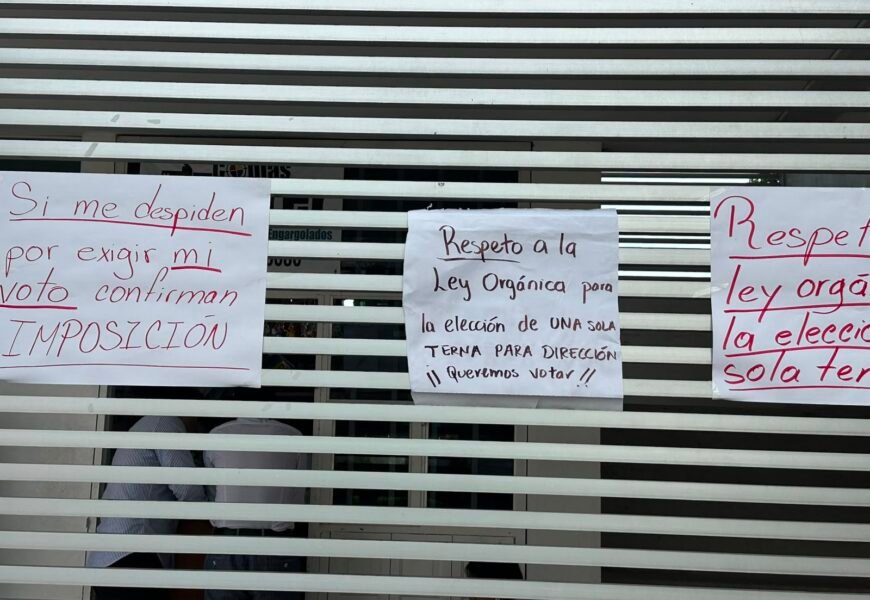 Gomas
Engargolados
Si me despiden
por exigir mi
voto confirman
IMPOSICIÓN
Respeto a la
Ley Orgánica para
la elección de UNA SOLA
TERNA PARA DIRECCIÓN
¡¡ Queremos votar !!
Respet
ley orgá
la elecció
sola ter